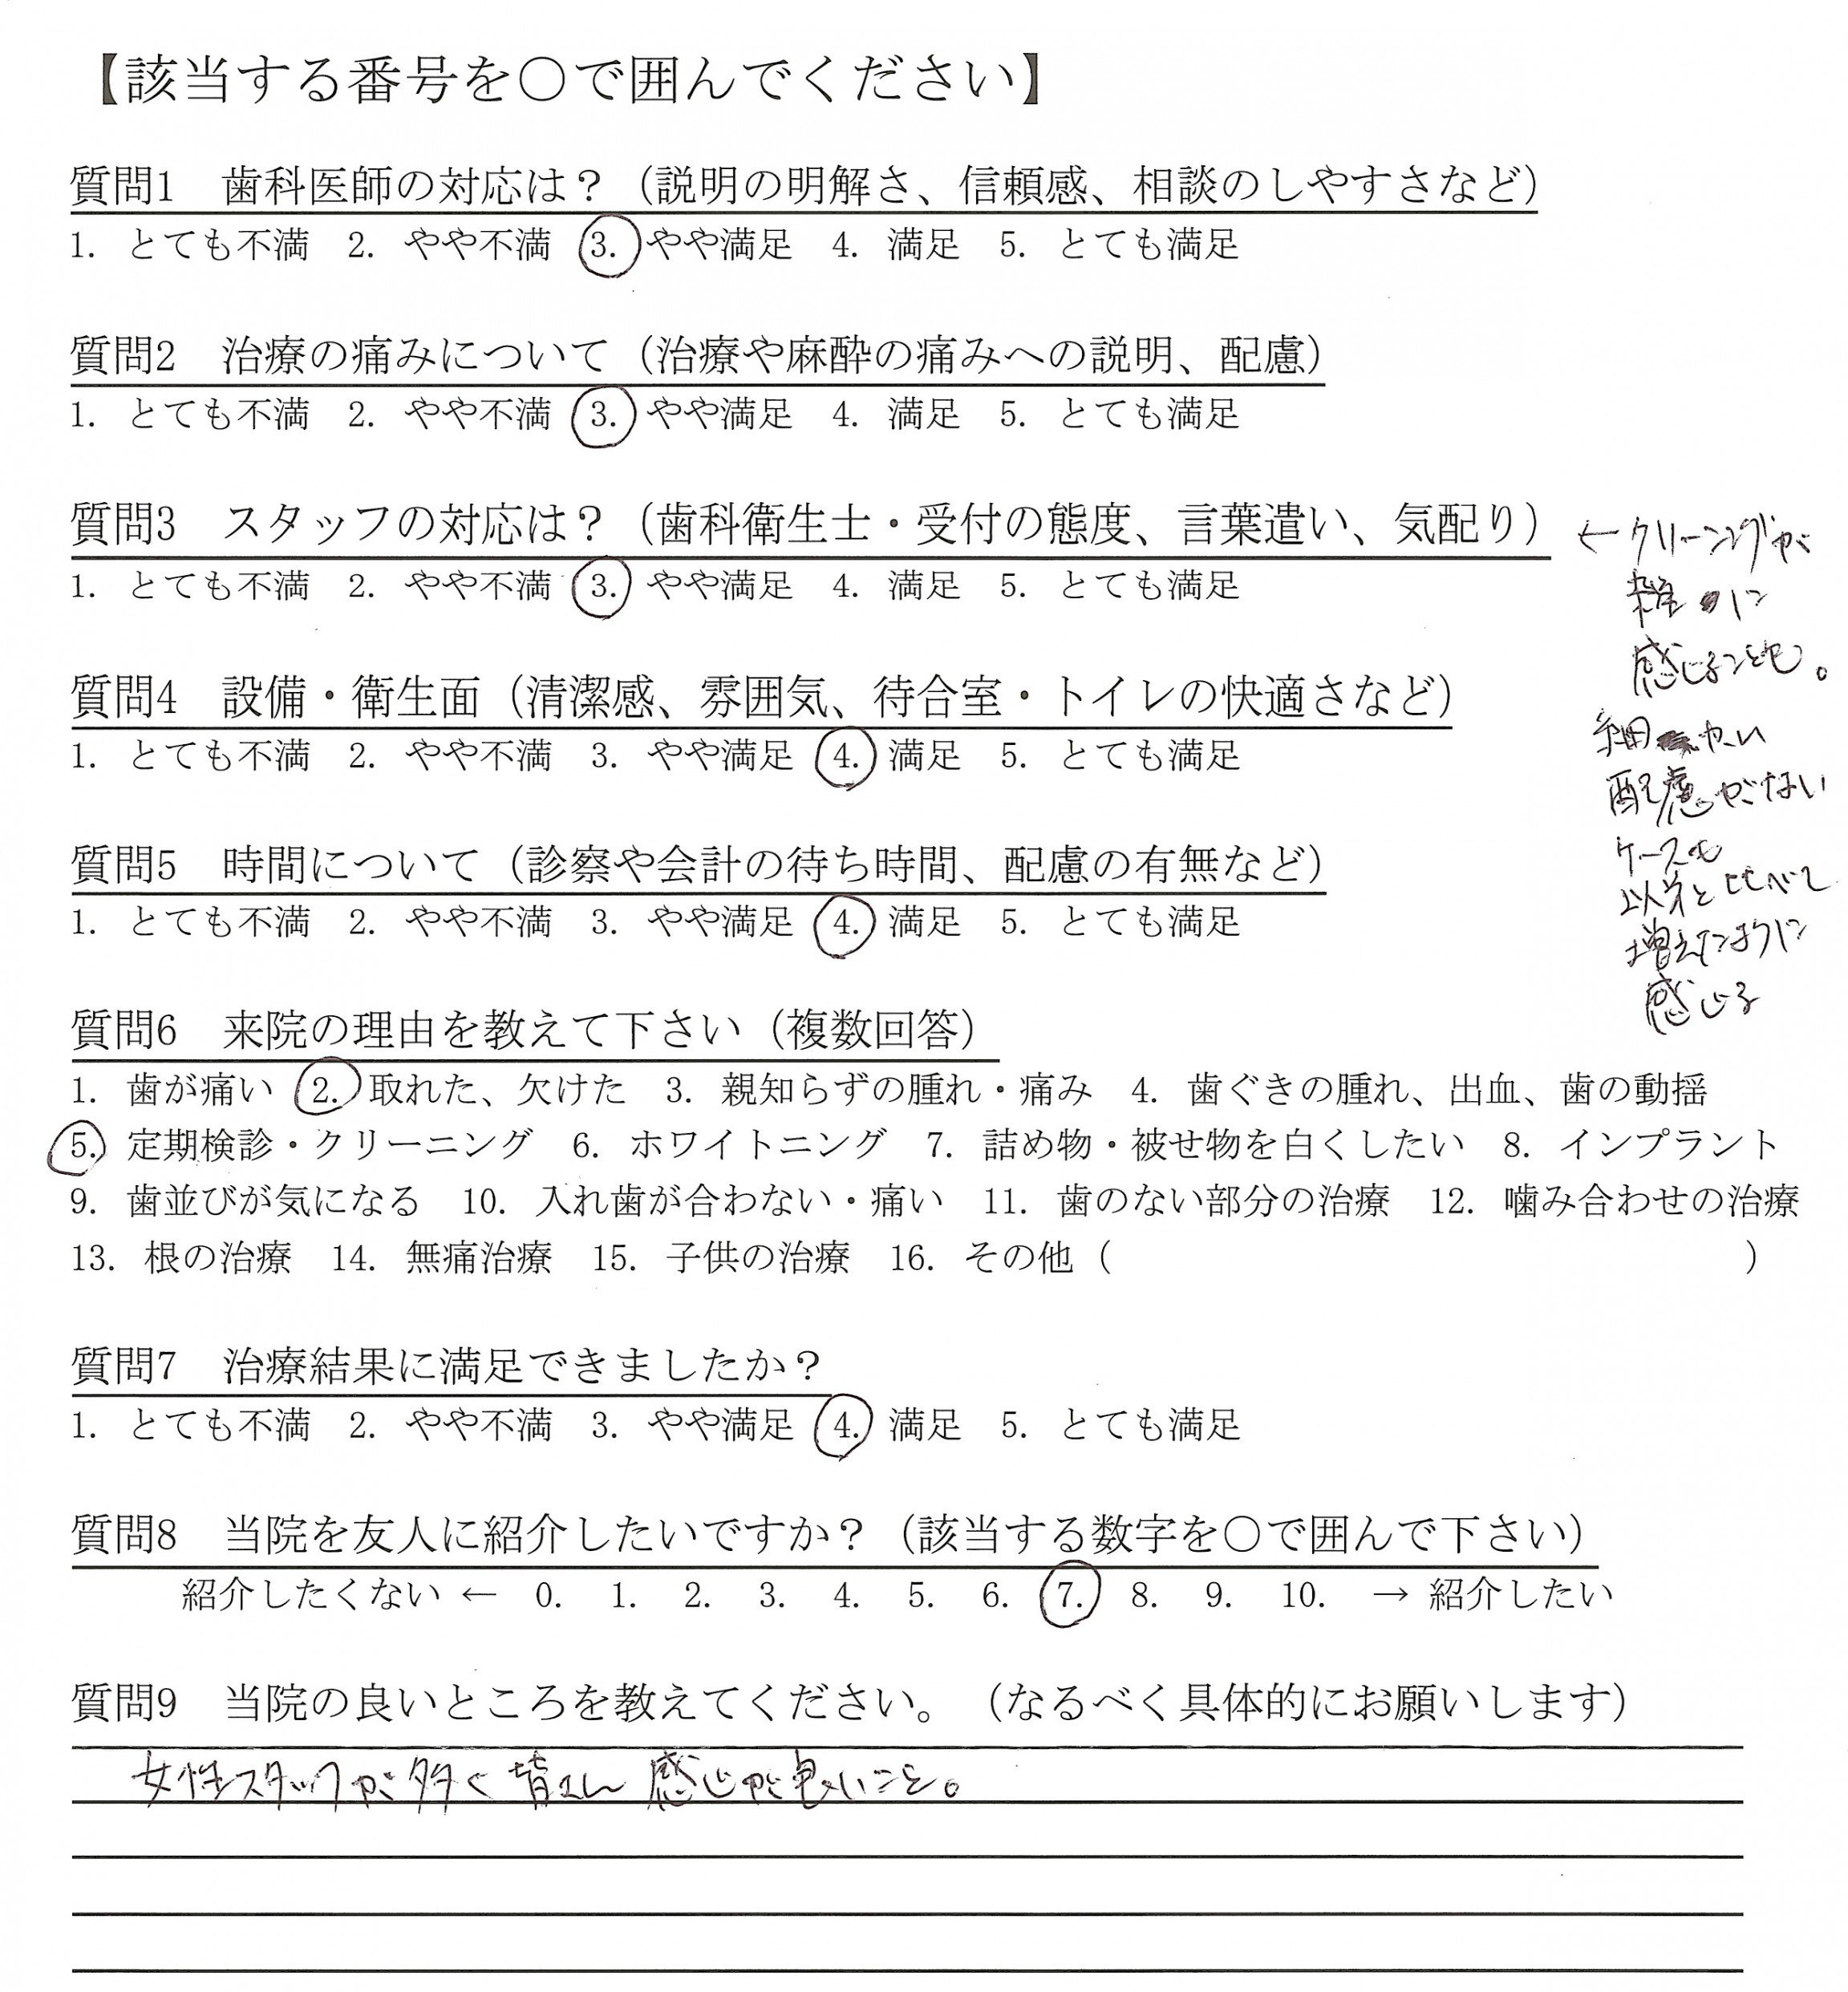 【該当する番号を○で囲んでください】
質問1 歯科医師の対応は？（説明の明解さ、信頼感、相談のしやすさなど）
1. とても不満 2. やや不満 3. やや満足 4. 満足 5. とても満足
質問2 治療の痛みについて（治療や麻酔の痛みへの説明、配慮）
1. とても不満 2. やや不満 3. やや満足 4. 満足 5. とても満足
質問3 スタッフの対応は？（歯科衛生士・受付の態度、言葉遣い、気配り）
1. とても不満 2. やや不満 3. やや満足 4. 満足 5. とても満足
←クリーニングが
雑に
感じることも。
細かい
配慮がない
ケースも
以前と比べて
増えたように
感じる
質問4 設備・衛生面（清潔感、雰囲気、待合室・トイレの快適さなど）
1. とても不満 2. やや不満 3. やや満足 4. 満足 5. とても満足
質問5 時間について（診察や会計の待ち時間、配慮の有無など）
1. とても不満 2. やや不満 3. やや満足 4. 満足 5. とても満足
質問6 来院の理由を教えて下さい（複数回答）
1. 歯が痛い 2. 取れた、欠けた 3. 親知らずの腫れ・痛み 4. 歯ぐきの腫れ、出血、歯の動揺
5. 定期検診・クリーニング 6. ホワイトニング 7. 詰め物・被せ物を白くしたい 8. インプラント
9. 歯並びが気になる 10. 入れ歯が合わない・痛い 11. 歯のない部分の治療 12. 噛み合わせの治療
13. 根の治療 14. 無痛治療 15. 子供の治療 16. その他（ ）
質問7 治療結果に満足できましたか？
1. とても不満 2. やや不満 3. やや満足 4. 満足 5. とても満足
質問8 当院を友人に紹介したいですか？（該当する数字を○で囲んで下さい）
紹介したくない ← 0. 1. 2. 3. 4. 5. 6. 7. 8. 9. 10. → 紹介したい
質問9 当院の良いところを教えてください。（なるべく具体的にお願いします）
女性スタッフが多く皆さん感じが良いこと。